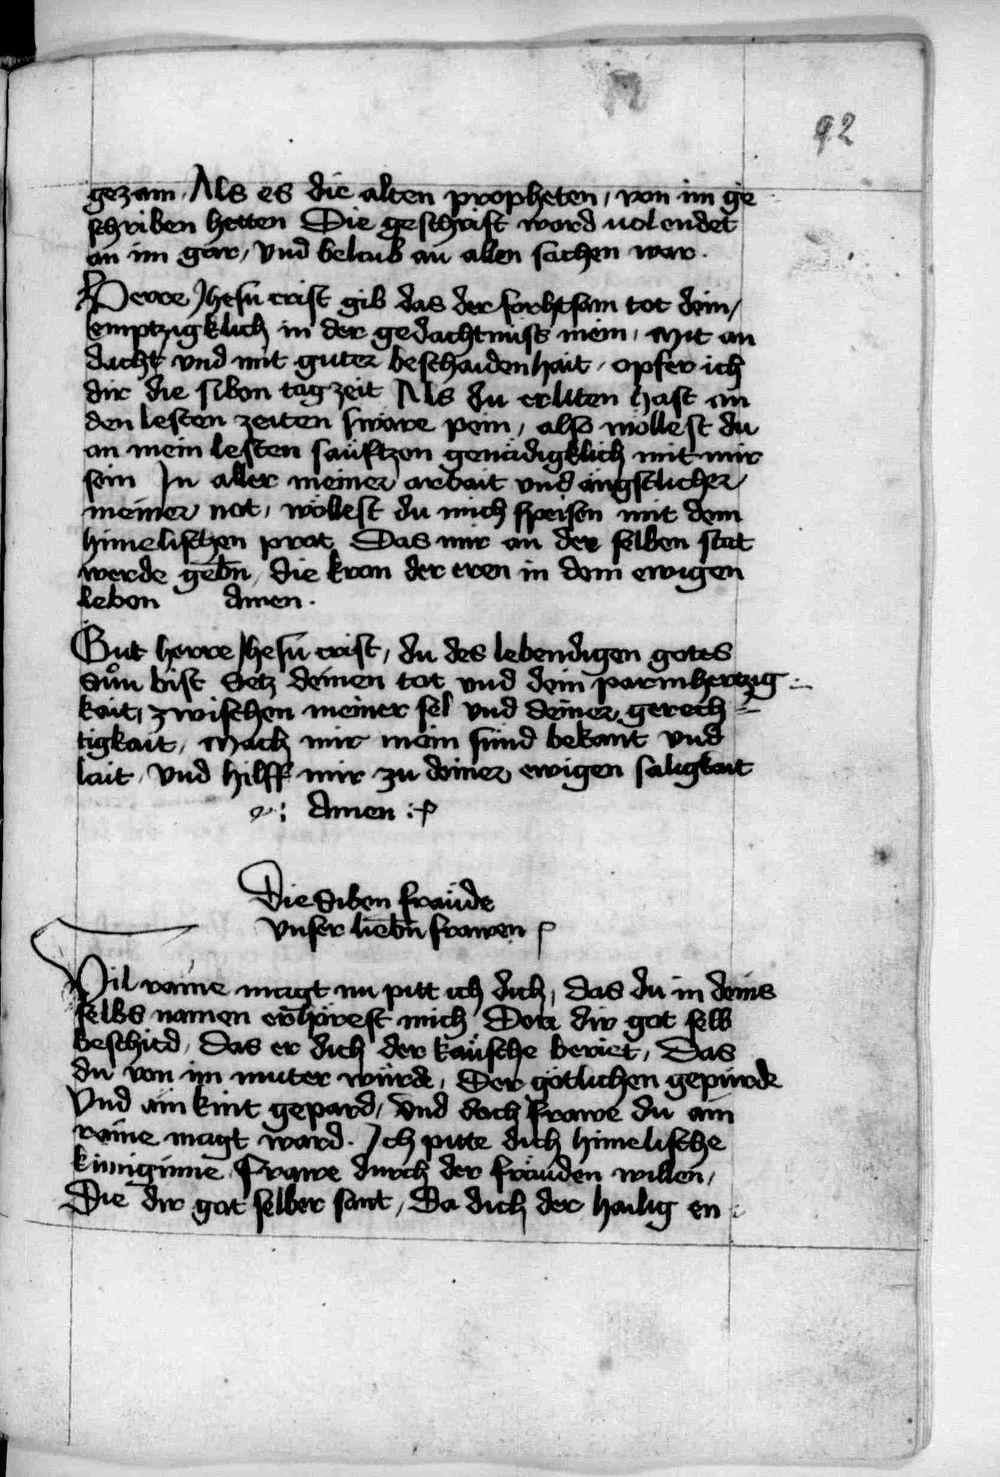 92
gezam, Als es die alten propheten, von im ge
schriben hetten Die geschrift ward uolendet
an im gar, Vnd belaib an allen sachen war.
Herre Jhesu crist gib das der forhtsam tot dein,
emptzigklich in der gedachtnuss mein, Mit an
dacht vnd mit guter beschaidenhait, opfer ich
dir die siben tagzeit Als du erliten hast an
den lesten zeiten swäre pein, also wöllest du
an mein lesten säuftzen genädigklich mit mir
sein In aller meiner arbait vnd ängstlicher
meiner not, wöllest du mich speisen mit dem
himelischen prot Das mir an der selben stat
werde gebn, die kron der eren in dem ewigen
leben Amen.
Gut herre Jhesu crist, du des lebendigen gotes
sůn bist Setz deinen tot vnd dein parmhertzig
kait, zwischen meiner sel vnd deiner gerech
tigkait, Mach mir mein sünd bekant vnd
lait, Vnd hilff mir zu deiner ewigen saligkait
Amen
Die Siben fräude
vnser liebn frawen
Vil raine magt nu pitt ich dich, das du in deins
selbs namen erhörest mich Der dir got selb
beschied, Das er dich der käusche beriet, Das
du von im muter würde, Der götlichen gepürde
Vnd ain kint gepard, Vnd doch frawe du ain
raine magt ward. Ich pitte dich himelische
küniginne, Frawe durch der fräuden willen,
Die dir got selber sant, Da dich der hailig en